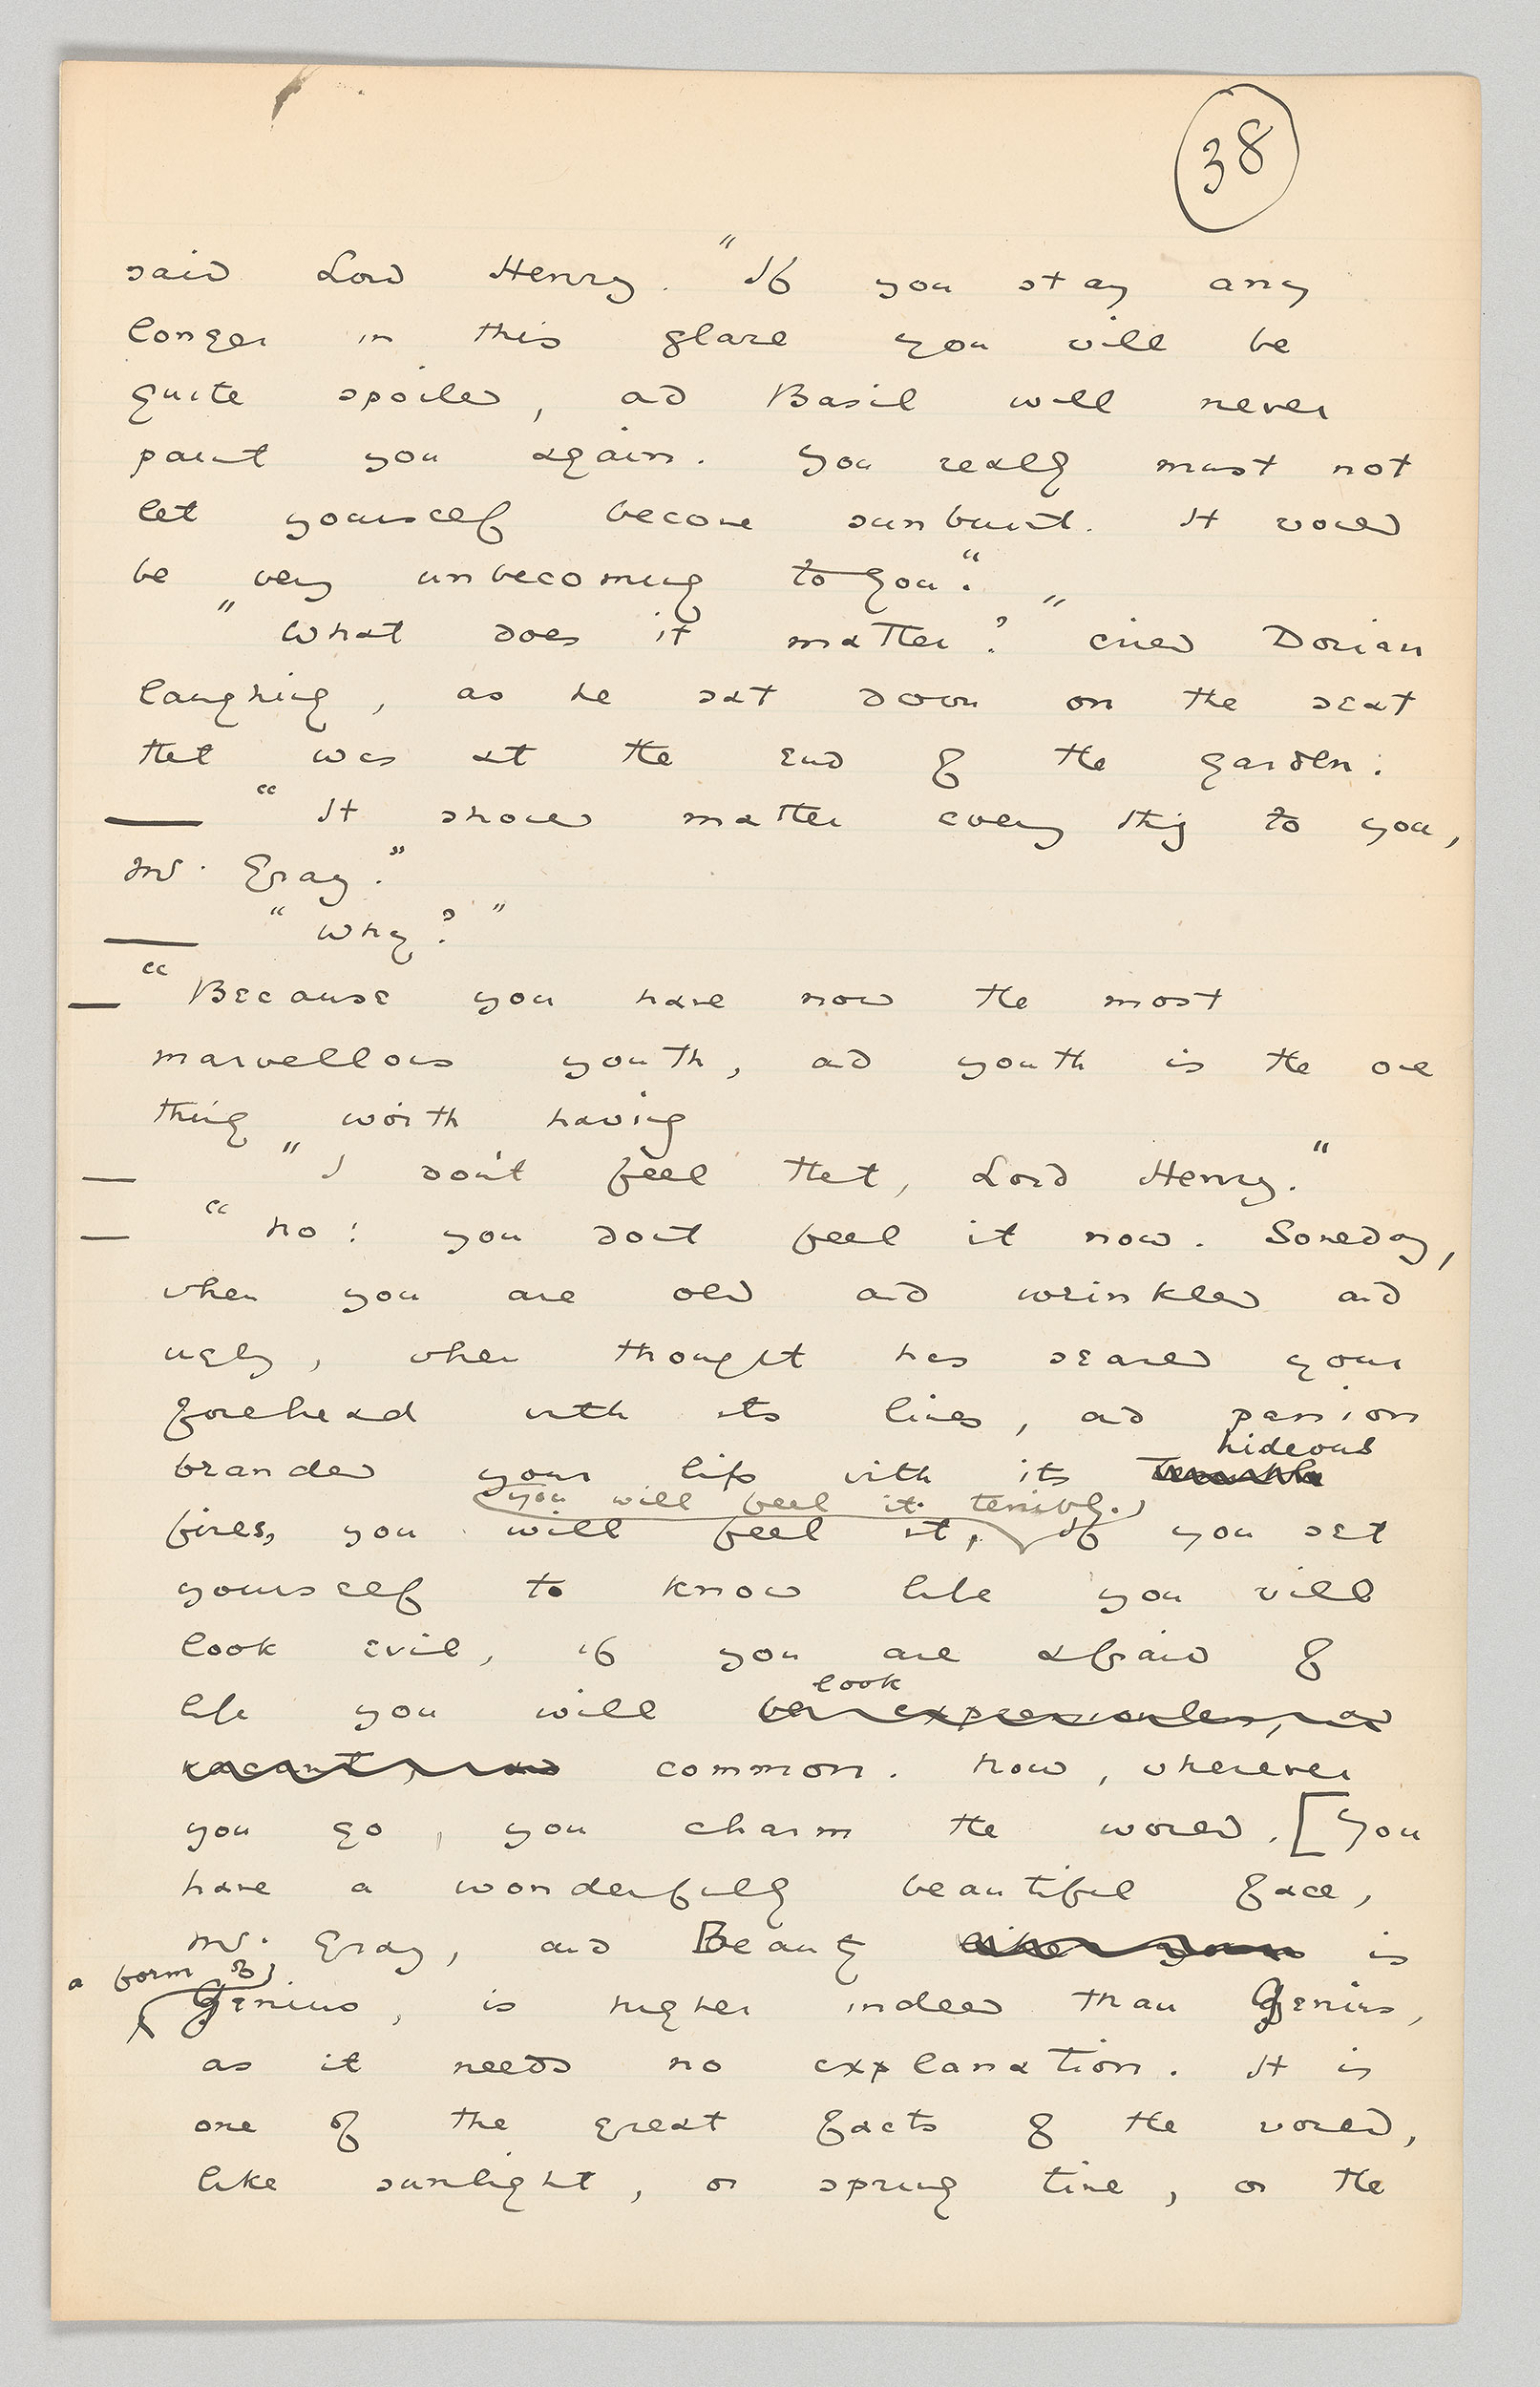 38
said Lord Henry. "If you stay any
longer in this glare you will be
quite spoiled, and Basil will never
paint you again. You really must not
let yourself become sunburnt. It would
be very unbecoming to you."
"What does it matter?" cried Dorian
laughing, as he sat down on the seat
that was at the end of the garden.
— "It should matter every thing to you,
Mr. Gray."
— "Why?"
— "Because you have now the most
marvellous youth, and youth is the one
thing worth having
— "I don't feel that, Lord Henry."
— "No: you don't feel it now. Someday,
when you are old and wrinkled and
ugly, when thought has seared your
forehead with its lines, and passion
hideous
branded your lips with its terrible
you will feel it terribly.
fires, you will feel it, If you set
yourself to know life you will
look evil, if you are afraid of
look
life you will be expressionless, and
vacant, and common. Now, wherever
you go, you charm the world. [You
have a wonderfully beautiful face,
Mr. Gray, and Beauty is
a form of
Genius, is higher indeed than Genius,
as it needs no explanation. It is
one of the great facts of the world,
like sunlight, or spring time, or the